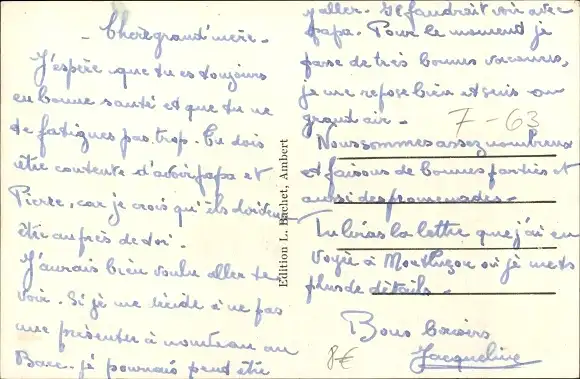 - Chère grand'mère -
J'espère que tu es toujours
en bonne santé et que tu ne
te fatigues pas trop. Tu dois
être contente d'avoir papa et
Pierre, car je crois qu'ils doivent
être auprès de toi.
J'aurais bien voulu aller te
voir. Si je me décide à ne pas
me présenter à nouveau au
Bacc. je pourrais peut être
y aller. Il faudrait voir avec
papa. Pour le moment je
passe de très bonnes vacances,
je me repose bien et suis au
grand air.
7-63
Nous sommes assez nombreux
et faisons de bonnes parties et
aussi des promenades.
Tu liras la lettre que j'ai en
voyée à Montluçon où je mets
plus de détails.
Bons baisers
Jacqueline
8€
Edition L. Bachet, Ambert